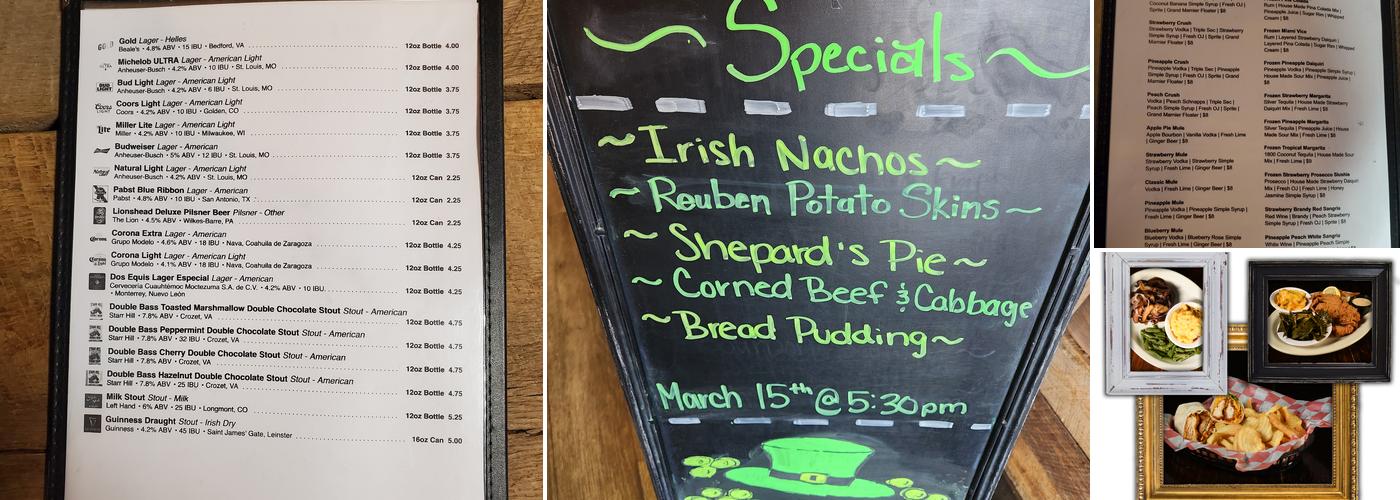 Gold Lager - Helles
Beale's • 4.8% ABV • 15 IBU • Bedford, VA 12oz Bottle 4.00
Michelob ULTRA Lager - American Light
Anheuser-Busch • 4.2% ABV • 10 IBU • St. Louis, MO 12oz Bottle 4.00
Bud Light Lager - American Light
Anheuser-Busch • 4.2% ABV • 6 IBU • St. Louis, MO 12oz Bottle 3.75
Coors Light Lager - American Light
Coors • 4.2% ABV • 10 IBU • Golden, CO 12oz Bottle 3.75
Miller Lite Lager - American Light
Miller • 4.2% ABV • 10 IBU • Milwaukee, WI 12oz Bottle 3.75
Budweiser Lager - American Light
Anheuser-Busch • 5% ABV • 12 IBU • St. Louis, MO 12oz Bottle 3.75
Natural Light Lager - American Light
Anheuser-Busch • 4.2% ABV • St. Louis, MO 12oz Can 2.25
Pabst Blue Ribbon Lager - American Light
Pabst • 4.8% ABV • 10 IBU • San Antonio, TX 12oz Can 2.25
Lionshead Deluxe Pilsner Beer Pilsner - Other
The Lion • 4.5% ABV • Wilkes-Barre, PA 12oz Can 2.25
Corona Extra Lager - American Light
Grupo Modelo • 4.6% ABV • 18 IBU • Nava, Coahuila de Zaragoza 12oz Bottle 4.25
Corona Light Lager - American Light
Grupo Modelo • 4.1% ABV • 18 IBU • Nava, Coahuila de Zaragoza 12oz Bottle 4.25
Dos Equis Lager Especial Lager - American
Cerveceria Cuauhtémoc Moctezuma S.A. de C.V. • 4.2% ABV • 10 IBU.
• Monterrey, Nuevo León 12oz Bottle 4.25
Double Bass Toasted Marshmallow Double Chocolate Stout Stout - American
Starr Hill • 7.8% ABV • Crozet, VA 12oz Bottle 4.75
Double Bass Peppermint Double Chocolate Stout Stout - American
Starr Hill • 7.8% ABV • 32 IBU • Crozet, VA 12oz Bottle 4.75
Double Bass Cherry Double Chocolate Stout Stout - American
Starr Hill • 7.8% ABV • Crozet, VA 12oz Bottle 4.75
Double Bass Hazelnut Double Chocolate Stout Stout - American
Starr Hill • 7.8% ABV • 25 IBU • Crozet, VA 12oz Bottle 4.75
Milk Stout Stout - Milk
Left Hand • 6% ABV • 25 IBU • Longmont, CO 12oz Bottle 5.25
Guinness Draught Stout - Irish Dry
Guinness • 4.2% ABV • 45 IBU • Saint James' Gate, Leinster 16oz Can 5.00
~ Specials ~
~Irish Nachos~
~Reuben Potato Skins~
~Shepard's Pie~
~Corned Beef & Cabbage
~Bread Pudding~
March 15th @ 5:30pm
Coconut Banana Simple Syrup | Fresh OJ |
Sprite | Grand Marnier Floater | $8
Strawberry Crush
Strawberry Vodka | Triple Sec | Strawberry
Simple Syrup | Fresh OJ | Sprite | Grand
Marnier Floater | $8
Pineapple Crush
Pineapple Vodka | Triple Sec | Pineapple
Simple Syrup | Fresh OJ | Sprite | Grand
Marnier Floater | $8
Peach Crush
Vodka | Peach Schnapps | Triple Sec |
Peach Simple Syrup | Fresh OJ | Sprite |
Grand Marnier Floater | $8
Apple Pie Mule
Apple Bourbon | Vanilla Vodka | Fresh Lime
| Ginger Beer | $8
Strawberry Mule
Strawberry Vodka | Strawberry Simple
Syrup | Fresh Lime | Ginger Beer | $8
Classic Mule
Vodka | Fresh Lime | Ginger Beer | $8
Pineapple Mule
Pineapple Vodka | Pineapple Simple Syrup |
Fresh Lime | Ginger Beer | $8
Blueberry Mule
Blueberry Vodka | Blueberry Rose Simple
Syrup | Fresh Lime | Ginger Beer | $8
Rum | House Made Pina Colada Mix |
Pineapple Juice | Sugar Rim | Whipped
Cream | $8
Frozen Miami Vice
Rum | Layered Strawberry Daiquiri |
Layered Pina Colada | Sugar Rim | Whipped
Cream | $8
Frozen Pineapple Daiquiri
Pineapple Vodka | Pineapple Simple Syrup |
House Made Sour Mix | Pineapple Juice |
$8
Frozen Strawberry Margarita
Silver Tequila | House Made Strawberry
Daiquiri Mix | Fresh Lime | $8
Frozen Pineapple Margarita
Silver Tequila | Pineapple Juice | House
Made Sour Mix | Fresh Lime | $8
Frozen Tropical Margarita
1800 Coconut Tequila | House Made Sour
Mix | Fresh Lime | $8
Frozen Strawberry Prosecco Slushie
Prosecco | House Made Strawberry Daiquiri
Mix | Fresh OJ | Fresh Lime | Honey
Jasmine Simple Syrup | $8
Strawberry Brandy Red Sangria
Red Wine | Brandy | Peach Strawberry
Simple Syrup | Fresh OJ | Sprite | $8
Pineapple Peach White Sangria
White Wine | Pineapple Peach Simple